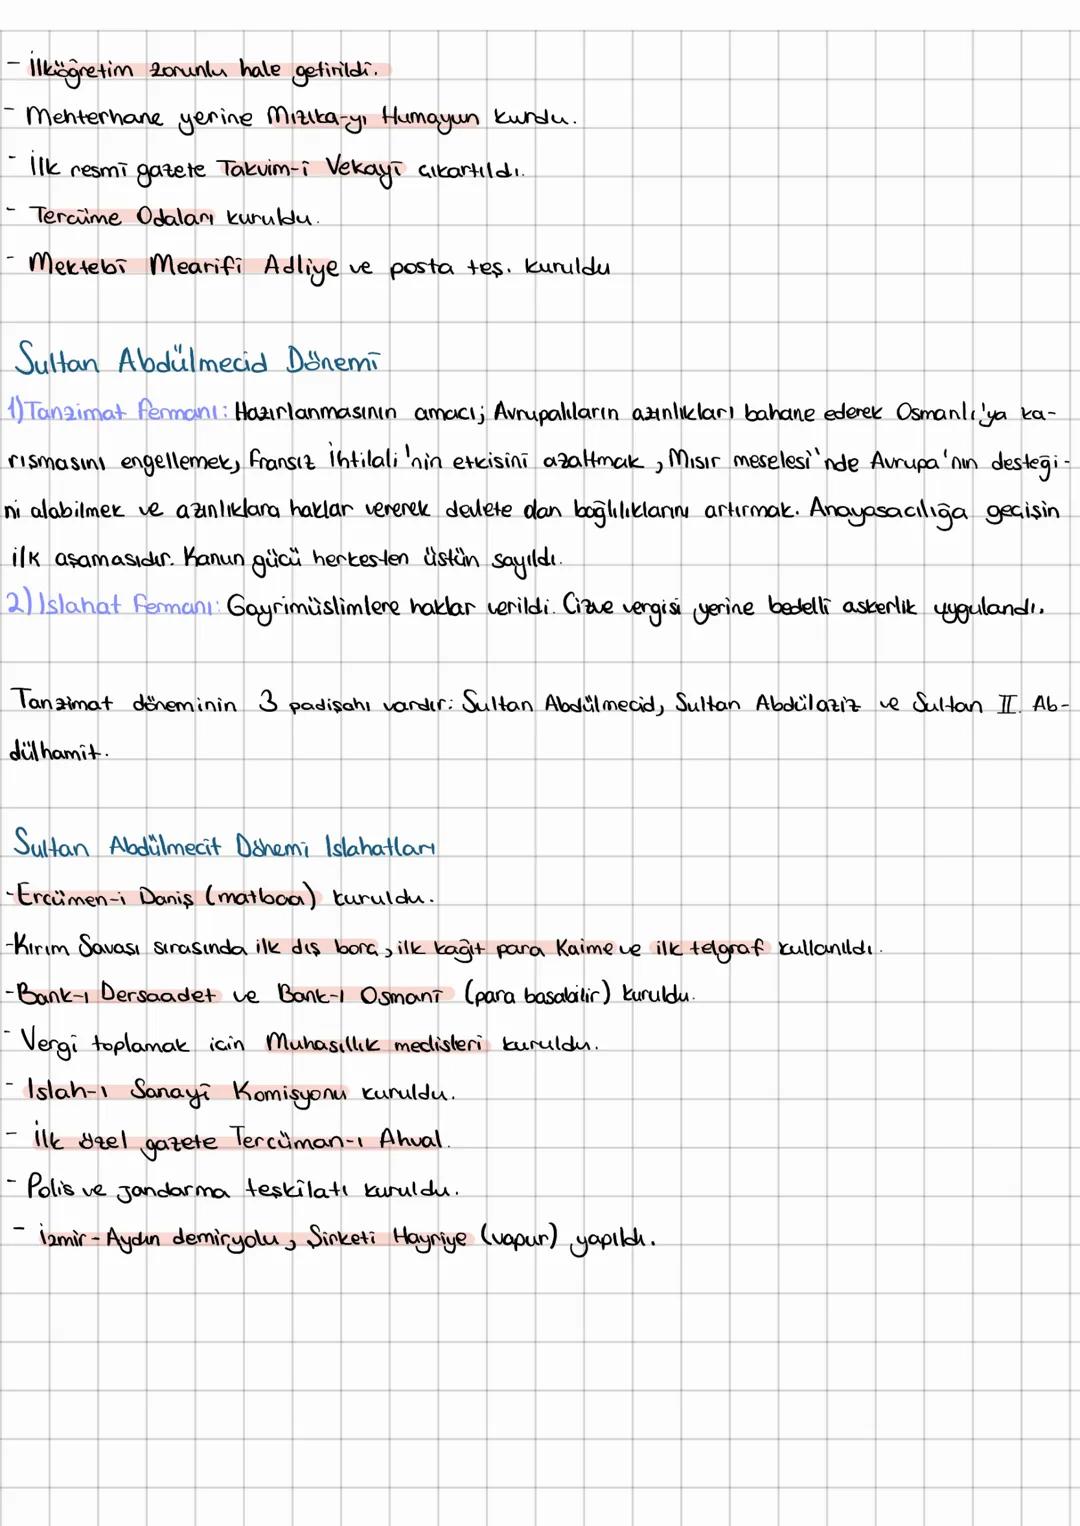 - İlköğretim zorunlu hale getirildi.
- Mehterhane yerine Mızıka-yı Humayun kurdu.
- İlk resmi gazete Takvim-i Vekayi çıkartıldı.
- Tercüme Odaları kuruldu.
- Mektebi Mearifi Adliye ve posta teş. kuruldu
Sultan Abdülmecid Dönemi
1) Tanzimat Fermanı: Hazırlanmasının amacı; Avrupalıların azınlıkları bahane ederek Osmanlı'ya ka-
rışmasını engellemek, Fransız İhtilali'nin etkisini azaltmak, Mısır meselesi'nde Avrupa'nın desteği-
ni alabilmek ve azınlıklara haklar vererek devlete olan bağlılıklarını artırmak. Anayasacılığa geçişin
ilk aşamasıdır. Kanun gücü herkesten üstün sayıldı.
2) Islahat Fermanı: Gayrimüslimlere haklar verildi. Cizye vergisi yerine bedelli askerlik uygulandı.
Tanzimat döneminin 3 padişahı vardır: Sultan Abdülmecid, Sultan Abdülaziz ve Sultan II. Ab-
dülhamit.
Sultan Abdülmecit Dönemi Islahatları
-Ercümen-i Daniş (matbaa) kuruldu.
-Kırım Savaşı sırasında ilk dış borç, ilk kağıt para Kaime ve ilk telgraf kullanıldı.
-Bank-ı Dersaadet ve Bank-ı Osmani (para basabilir) kuruldu.
- Vergi toplamak için Muhasıllık meclisleri kuruldu.
- Islah-ı Sanayi Komisyonu kuruldu.
- İlk özel gazete Tercüman-ı Ahval.
- Polis ve jandarma teşkilatı kuruldu.
- İzmir-Aydın demiryolu, Şirketi Hayriye (vapur) yapıldı.